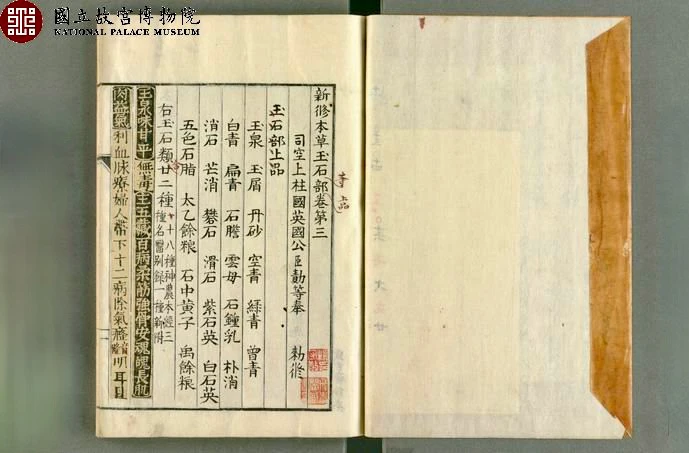 國立故宮博物院
NATIONAL PALACE MUSEUM
新修本草玉石部卷第三
上品
司空上柱國英國公臣勣等奉 勑修
玉石部上品
玉泉 玉屑 丹砂 空青 綠青 曾青
白青 扁青 石膽 雲母 石鍾乳 朴消
消石 芒消 礬石 滑石 紫石英 白石英
五色石脂 太乙餘粮 石中黄子 禹餘粮
右玉石類廿二種 十八種神農本經三
種名醫别錄一種新附
玉泉味甘平無毒主五藏百病柔筋強骨安魂魄長肌
肉益氣利血脉療婦人帶下十二病除氣癃明耳目